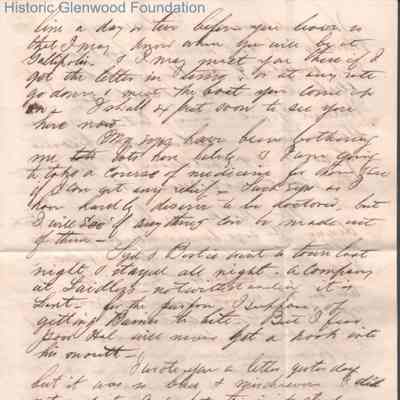 Historic Glenwood Foundation
line a day or two before you leave so
that I may know when you will be at
Gallipolis & I may meet you there if I
get the letter in time; or at any rate
go down & meet the boat you come up
on. I shall expect soon to see you
here now.
My eyes have been bothering
me lots here lately & I am going
to take a course of medicine for them & see
if I can get any relief. Such eyes as I
have hardly deserve to be doctored, but
I will see if any thing can be made out
of them
Syd & went to town last
night & stayed all night. A company
at Laidleys - notwithstanding it is
Lent - for the purpose, I suppose of
getting to bite. But I fear
poor Hal will never get a hook into
his mouth -
I wrote you a letter yesterday
but it was so & did